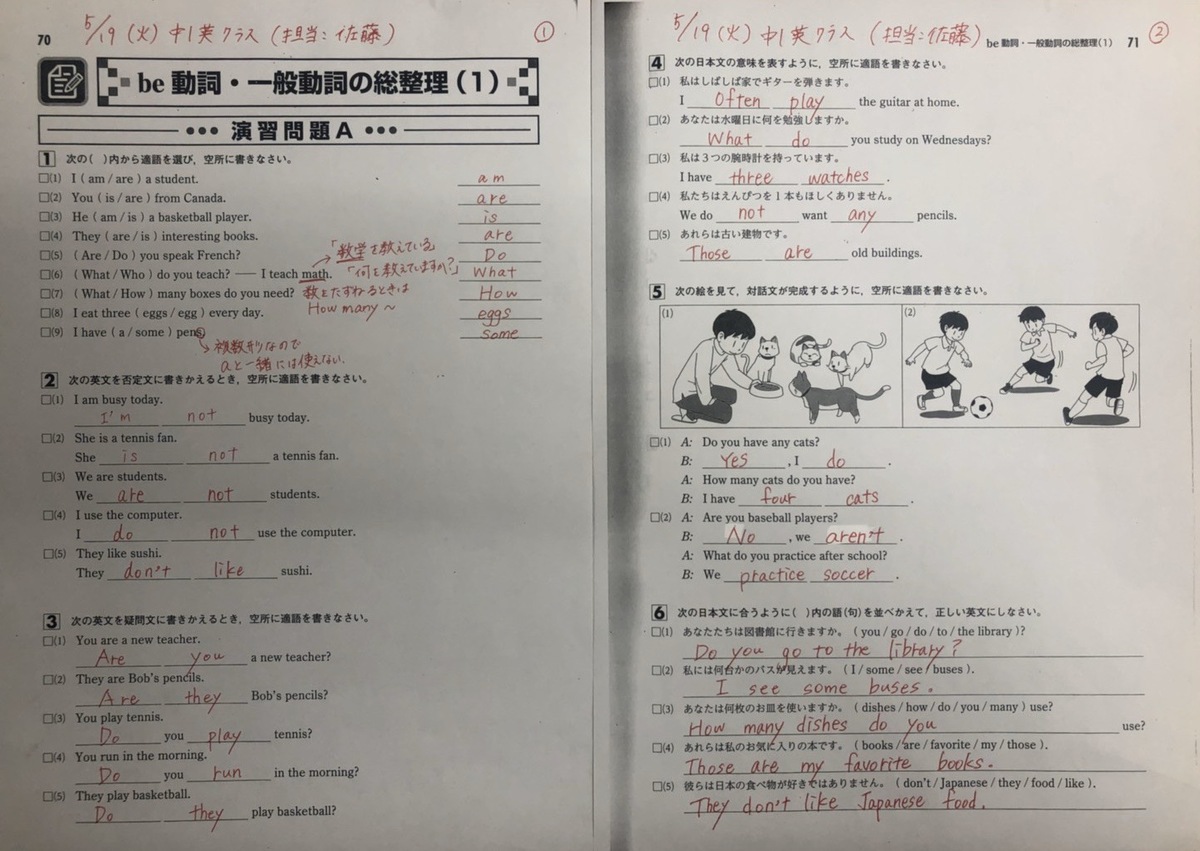 70
5/19 (火) 中1英クラス (担当:佐藤) ①
be 動詞・一般動詞の総整理(1)
••• 演習問題A •••
1 次の( )内から適語を選び,空所に書きなさい。
□(1) I ( am / are ) a student. am
□(2) You ( is / are ) from Canada. are
□(3) He ( am / is ) a basketball player. is
□(4) They ( are / is ) interesting books. are
「数学を教えている」
□(5) ( Are / Do ) you speak French? Do
□(6) ( What / Who ) do you teach? ── I teach math. 「何を教えていますか?」 What
□(7) ( What / How ) many boxes do you need? 数をたずねるときは How
How many ~
□(8) I eat three ( eggs / egg ) every day. eggs
□(9) I have ( a / some ) pens. some
複数形なので
aと一緒には使えない.
2 次の英文を否定文に書きかえるとき,空所に適語を書きなさい。
□(1) I am busy today.
I'm not busy today.
□(2) She is a tennis fan.
She is not a tennis fan.
□(3) We are students.
We are not students.
□(4) I use the computer.
I do not use the computer.
□(5) They like sushi.
They don't like sushi.
3 次の英文を疑問文に書きかえるとき,空所に適語を書きなさい。
□(1) You are a new teacher.
Are you a new teacher?
□(2) They are Bob's pencils.
Are they Bob's pencils?
□(3) You play tennis.
Do you play tennis?
□(4) You run in the morning.
Do you run in the morning?
□(5) They play basketball.
Do they play basketball?
5/19 (火) 中1英クラス (担当:佐藤) ②
be 動詞・一般動詞の総整理(1) 71
4 次の日本文の意味を表すように,空所に適語を書きなさい。
□(1) 私はしばしば家でギターを弾きます。
I often play the guitar at home.
□(2) あなたは水曜日に何を勉強しますか。
What do you study on Wednesdays?
□(3) 私は3つの腕時計を持っています。
I have three watches .
□(4) 私たちはえんぴつを1本もほしくありません。
We do not want any pencils.
□(5) あれらは古い建物です。
Those are old buildings.
5 次の絵を見て,対話文が完成するように,空所に適語を書きなさい。
(1) (2)
□(1) A: Do you have any cats?
B: Yes , I do .
A: How many cats do you have?
B: I have four cats .
□(2) A: Are you baseball players?
B: No , we aren't .
A: What do you practice after school?
B: We practice soccer .
6 次の日本文に合うように( )内の語(句)を並べかえて,正しい英文にしなさい。
□(1) あなたたちは図書館に行きますか。 ( you / go / do / to / the library )?
Do you go to the library?
□(2) 私には何台かのバスが見えます。 ( I / some / see / buses ).
I see some buses.
□(3) あなたは何枚のお皿を使いますか。 ( dishes / how / do / you / many ) use?
How many dishes do you use?
□(4) あれらは私のお気に入りの本です。 ( books / are / favorite / my / those ).
Those are my favorite books.
□(5) 彼らは日本の食べ物が好きではありません。 ( don't / Japanese / they / food / like ).
They don't like Japanese food.